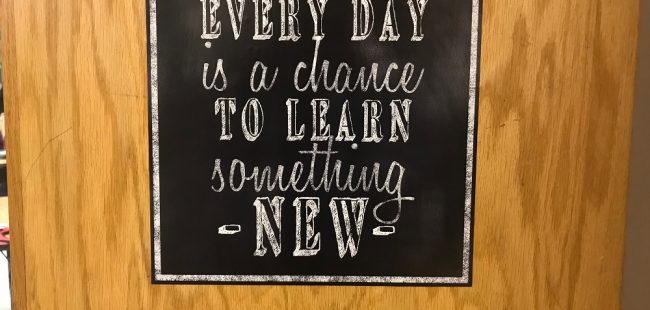 EVERY DAY
is a chance
TO LEARN
something
-NEW-